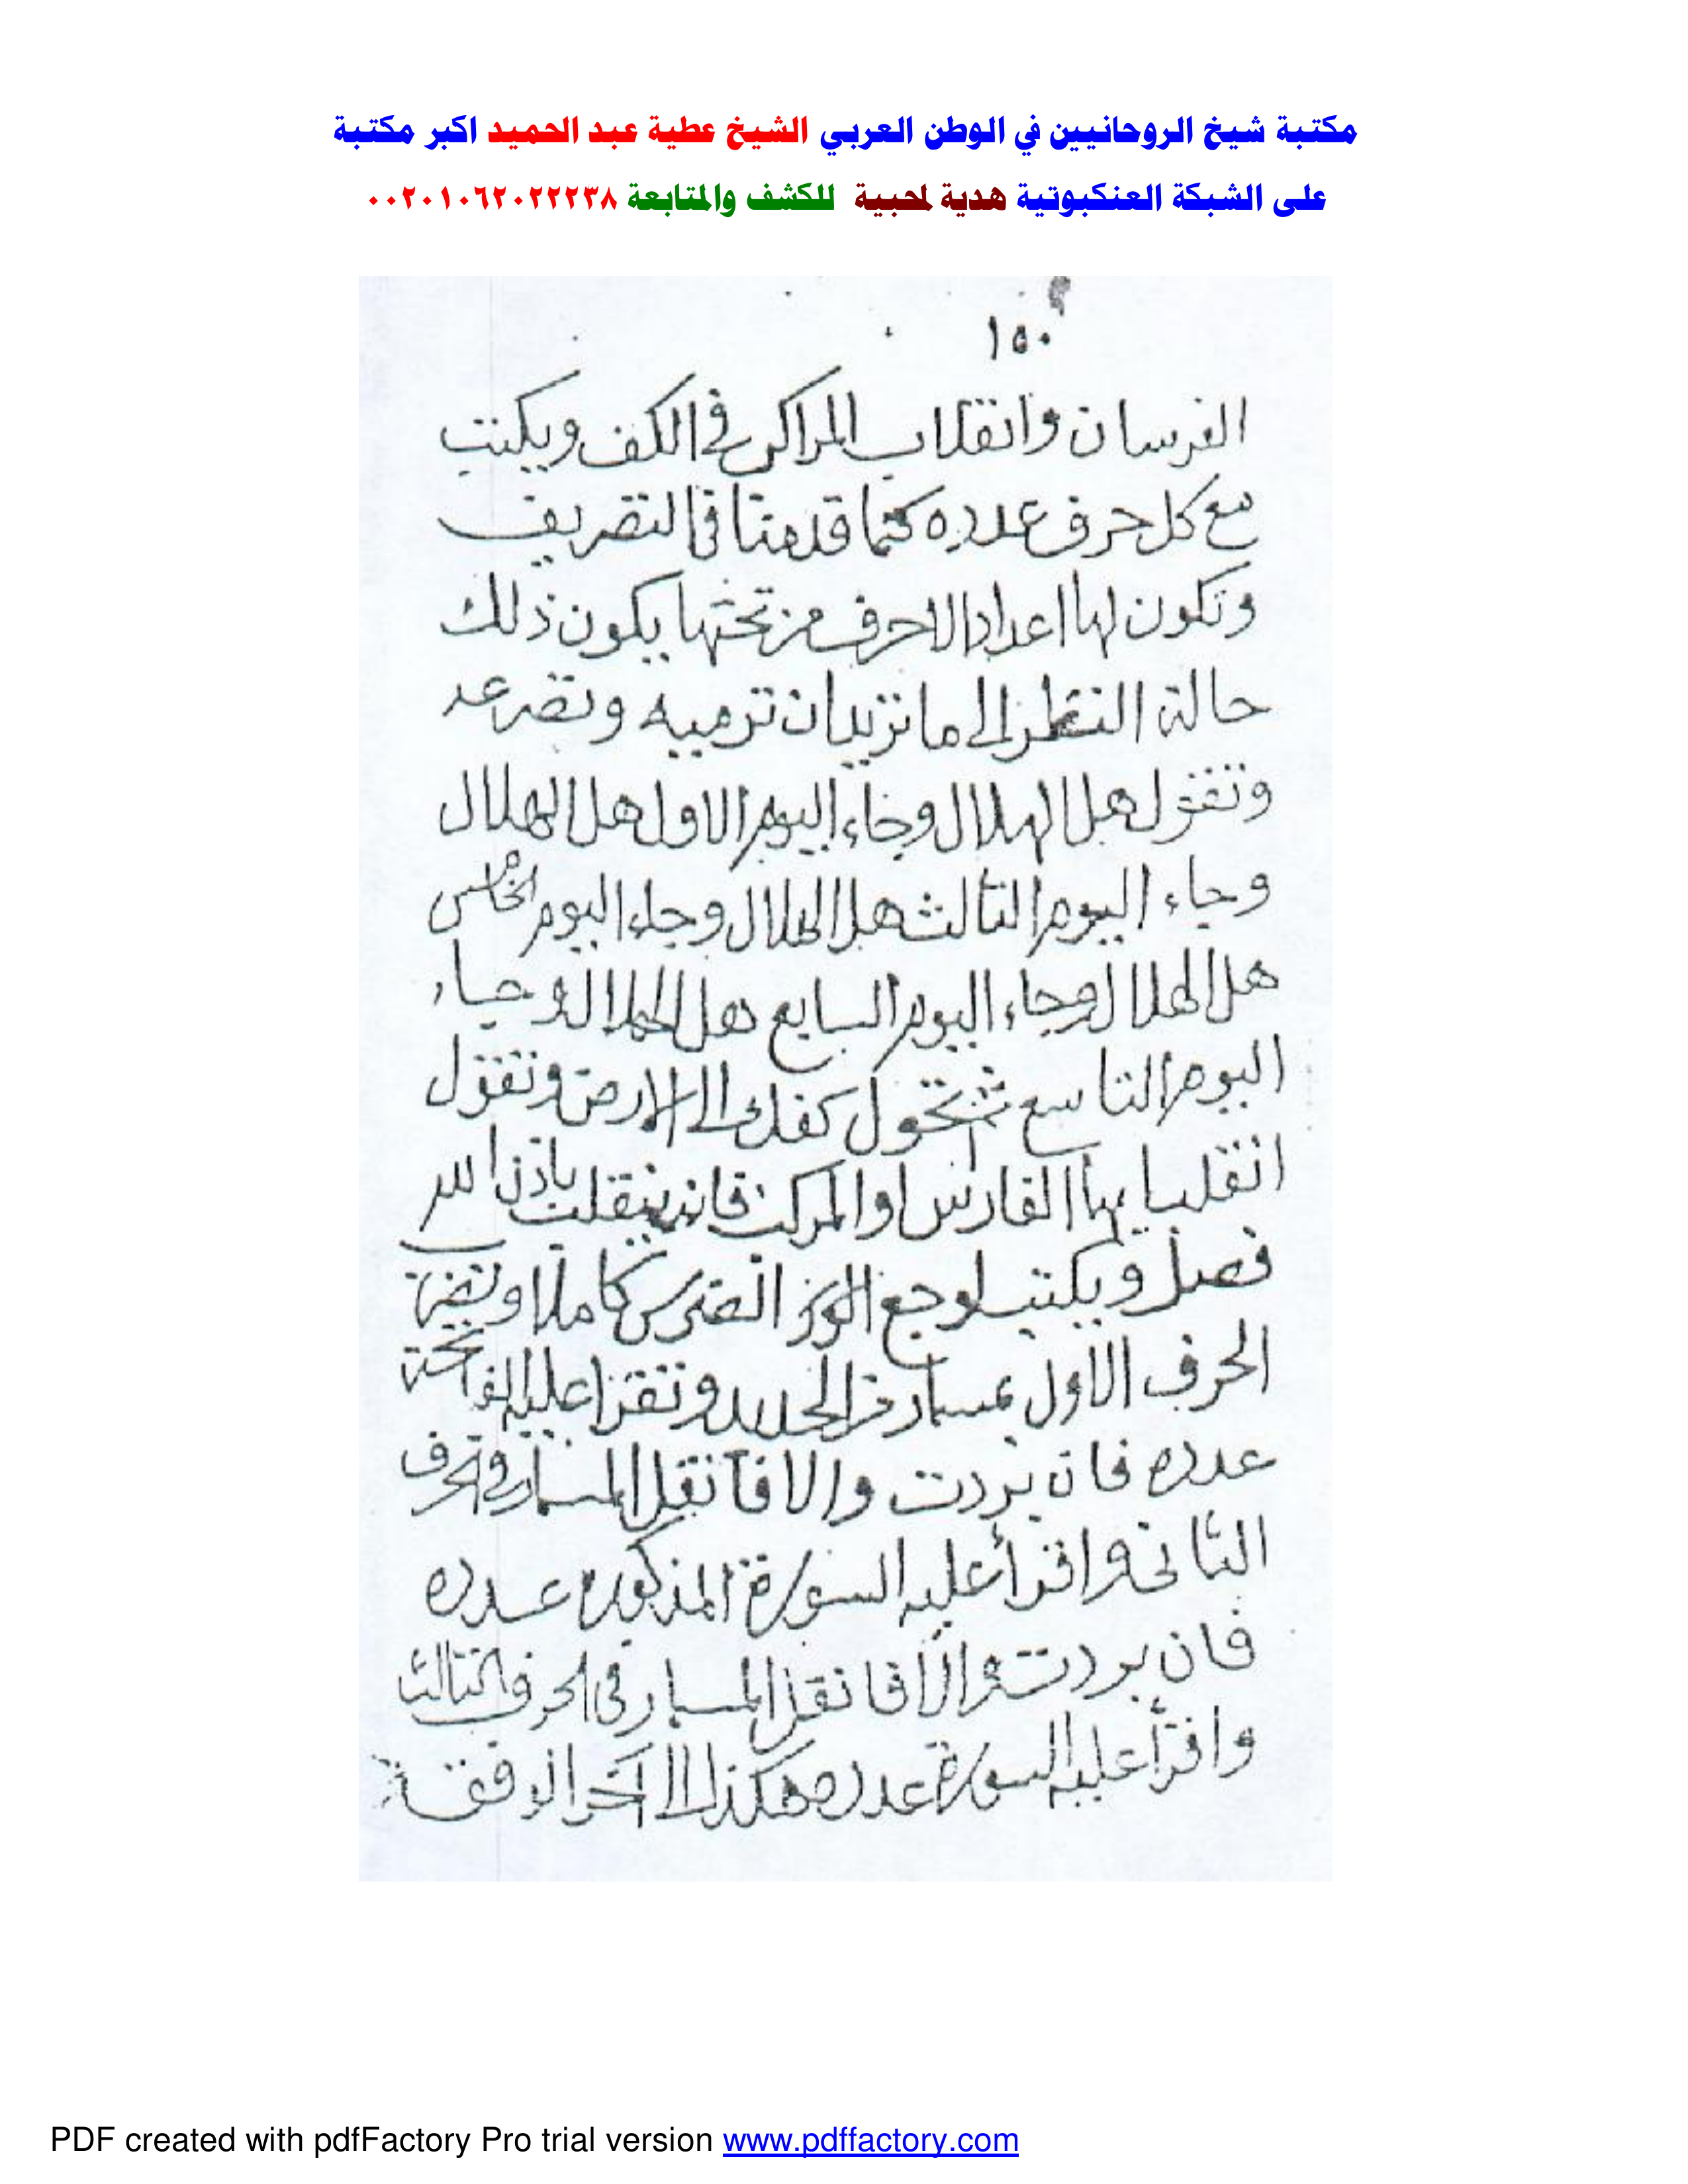 مكتبة شيخ الروحانيين في الوطن العربي الشيخ عطية عبد الحميد اكبر مكتبة
على الشبكة العنكبوتية هدية لمحبية للكشف والمتابعة ٠٠٢٠١٠٦٢٠٢٢٢٣٨
١٥٠
الفرسان وانقلاب المراكب في الكف ويكتب
مع كل حرف عدده كما قدمنا في التصريف
وتكون لها اعداد الاحرف من تحتها يكون ذلك
حالة النظر الى ما تريد ان ترميه وتصرعه
وتقول هل الهلال وجاء اليوم الاول هل الهلال
وجاء اليوم الثالث هل الهلال وجاء اليوم الخامس
هل الهلال وجاء اليوم السابع هل الهلال وجاء
اليوم التاسع ثم تحول كفك الى الارض وتقول
انقلب ايها الفارس او المركب فانه ينقلب باذن الله
فصل ويكتب لوجع الضرس كاملا وتضرب
الحرف الاول بمسمار من الحديد وتقرا عليه الفاتحة
عدده فان بردت والا فانقل المسمار في الحرف
الثاني واقرأ عليه السورة المذكورة عدده
فان بردت والا فانقل المسمار في الحرف الثالث
واقرأ عليه السورة عدده هكذا الى آخر الوفق
PDF created with pdfFactory Pro trial version www.pdffactory.com